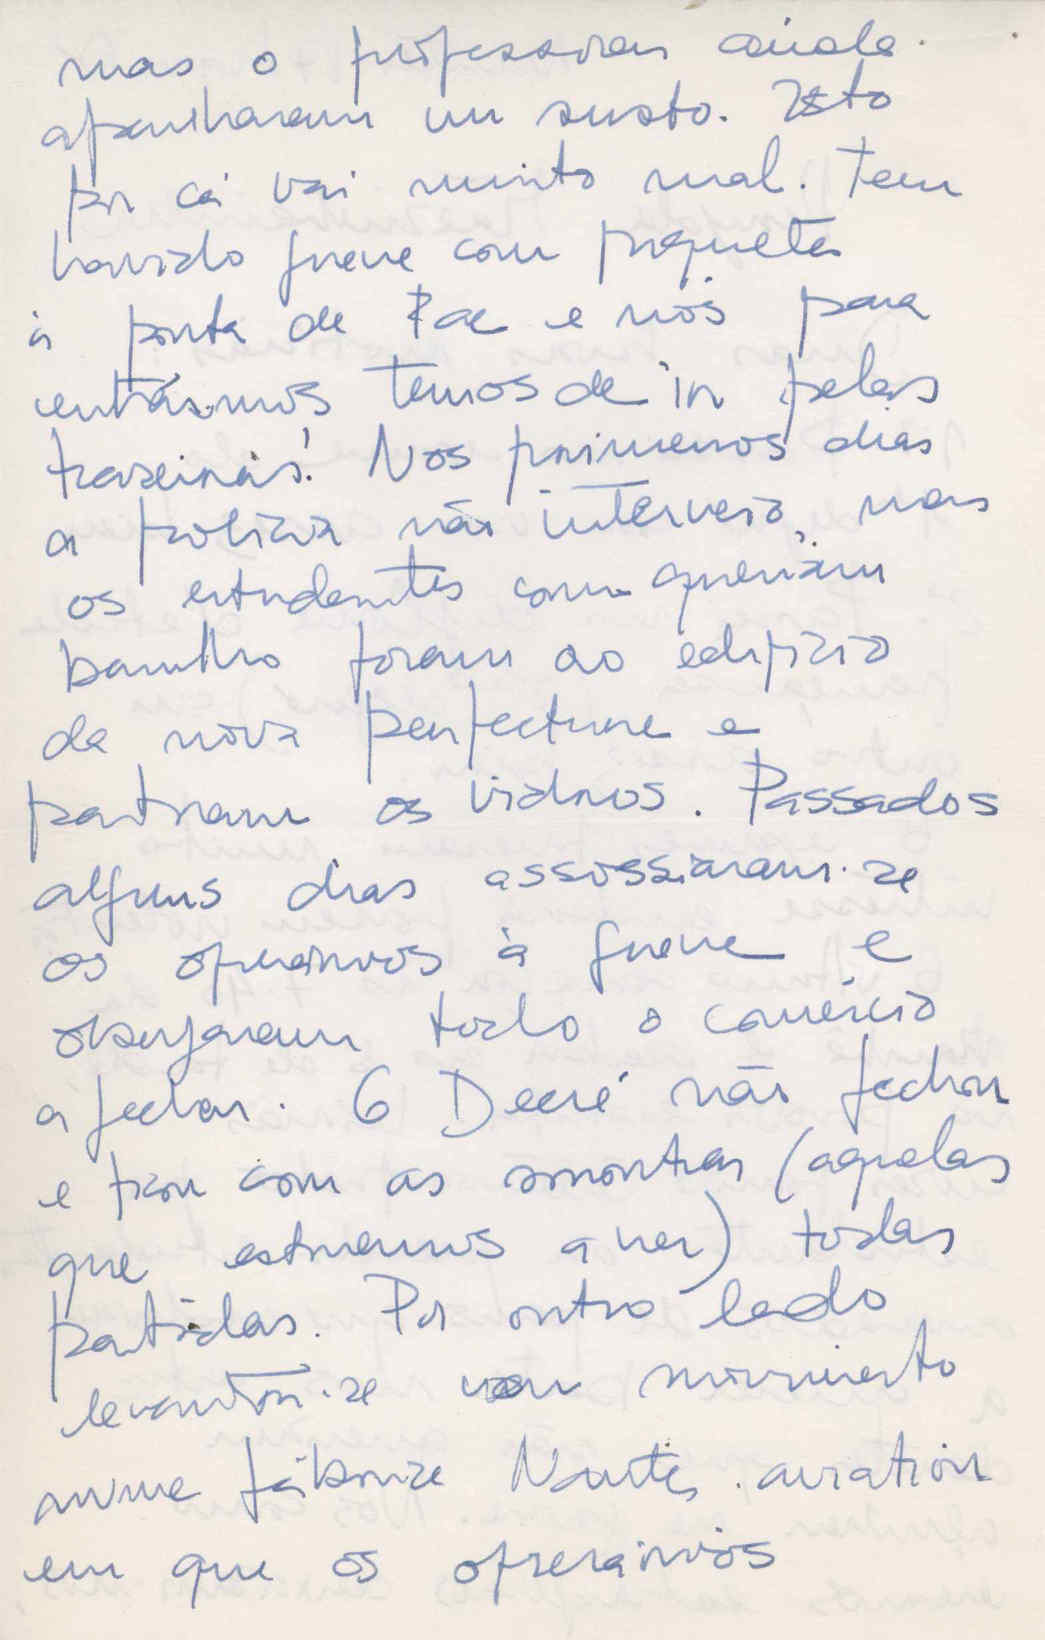 mas o professores ainda
apanharam um susto. Isto
por cá vai muito mal. Tem
havido greve com piquetes
à porta de Fac e nós para
entrármos temos de ir pelas
trazeiras! Nos primeiros dias
a polícia não interveio, mas
os estudantes como queriam
barulho foram ao edifício
da nova perfecture e
partiram os vidros. Passados
alguns dias assossiaram-se
os operários à greve e
obrigaram todo o comércio
a fechar. O Decré não fechou
e ficou com as montras (aquelas
que estivemos a ver) todas
partidas. Por outro lado
levantou-se um movimento
numa fábrica Nantes-aviation
em que os operários